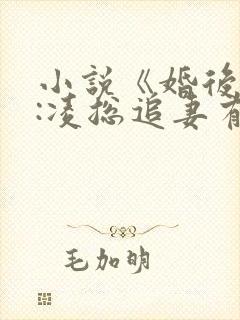 小說《婚後
:凌總追妻有
毛加明